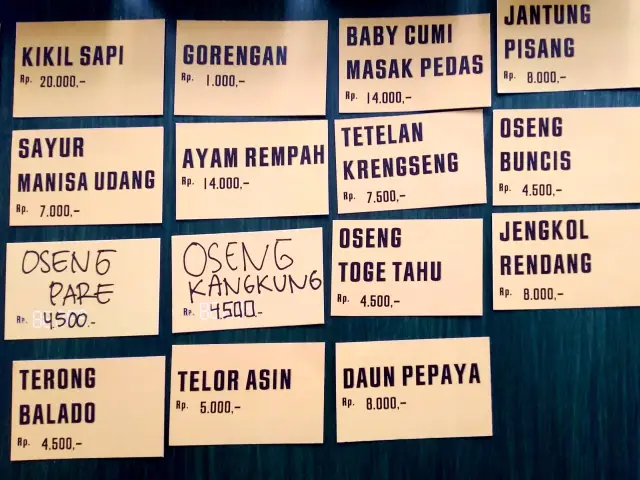 KIKIL SAPI
Rp. 20.000,-
GORENGAN
Rp. 1.000,-
BABY CUMI
MASAK PEDAS
Rp. 14.000,-
JANTUNG
PISANG
Rp. 8.000,-
SAYUR
MANISA UDANG
Rp. 7.000,-
AYAM REMPAH
Rp. 14.000,-
TETELAN
KRENGSENG
Rp. 7.500,-
OSENG
BUNCIS
Rp. 4.500,-
OSENG
PARE
Rp. 4.500.-
OSENG
KANGKUNG
Rp. 4.500.-
OSENG
TOGE TAHU
Rp. 4.500,-
JENGKOL
RENDANG
Rp. 8.000,-
TERONG
BALADO
Rp. 4.500,-
TELOR ASIN
Rp. 5.000,-
DAUN PEPAYA
Rp. 8.000,-